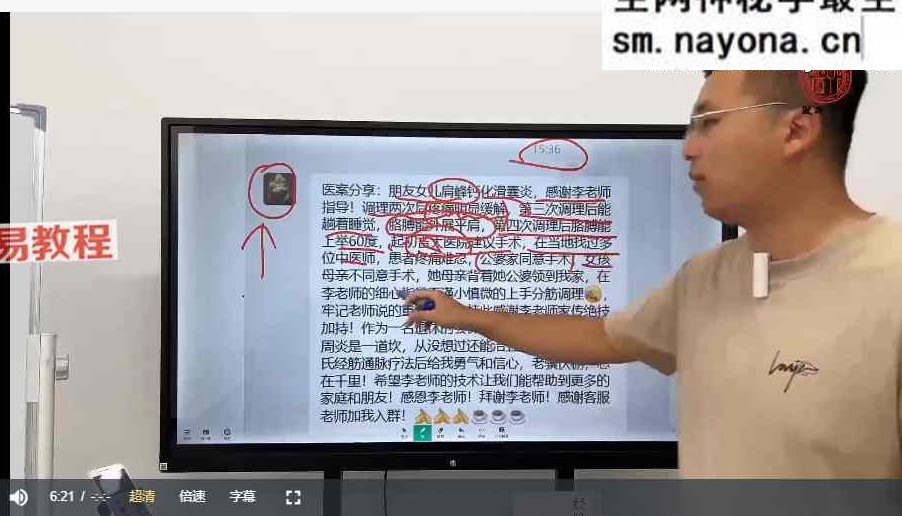 全网神秘学最全
sm.nayona.cn
易教程
15:36
医案分享：朋友女儿肩峰钙化滑囊炎，感谢李老师
指导！调理两次后疼痛明显缓解，第三次调理后能
趟着睡觉，胳膊能外展平肩，第四次调理后胳膊能
上举60度，起初
医院建议手术，在当地找过多
位中医师，患者疼痛难忍，公婆家同意手术，女孩
母亲不同意手术，她母亲背着她公婆领到我家，在
李老师的细心
谨小慎微的上手分筋调理
，
牢记老师说的重
感谢李老师家传绝技
加持！作为一名退休的
周炎是一道坎，从没想过还能
氏经筋通脉疗法后给我勇气和信心，老骥伏
在千里！希望李老师的技术让我们能帮助到更多的
家庭和朋友！感恩李老师！拜谢李老师！感谢客服
老师加我入群！
6:21 / -:-
超清
倍速
字幕